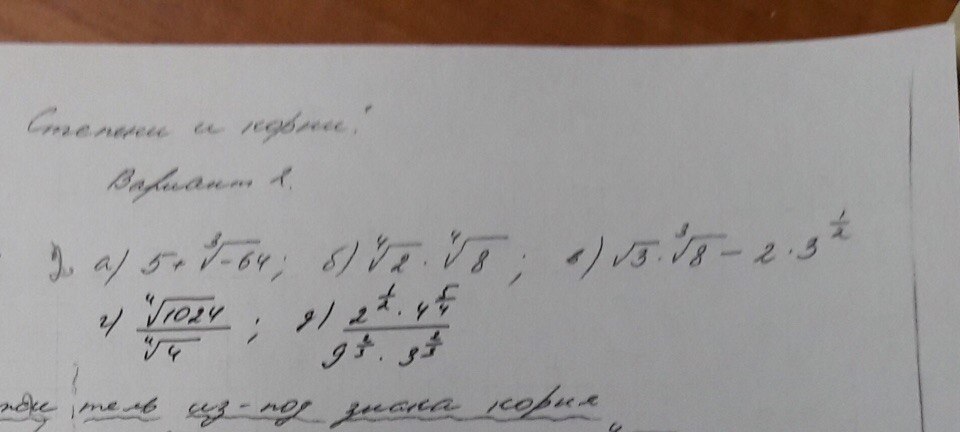 Степени и корни:
Вариант 2.
2. а) 5 + ∛-64 ; б) ∜2 · ∜8 ; в) √3 · ∛8 - 2 · 3^(1/2)
г) ∜1024 / ∜4 ; д) (2^(1/2) · 4^(5/4)) / (9^(2/3) · 3^(2/3))
тель из-под знака корня